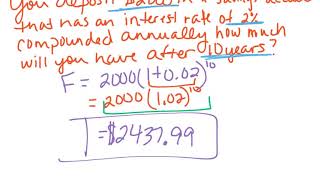 You deposit $2000 in a savings account
that has an interest rate of 2%
compounded annually how much
will you have after 10 years?
F = 2000(1+0.02)^10
= 2000(1.02)^10
= $2437.99